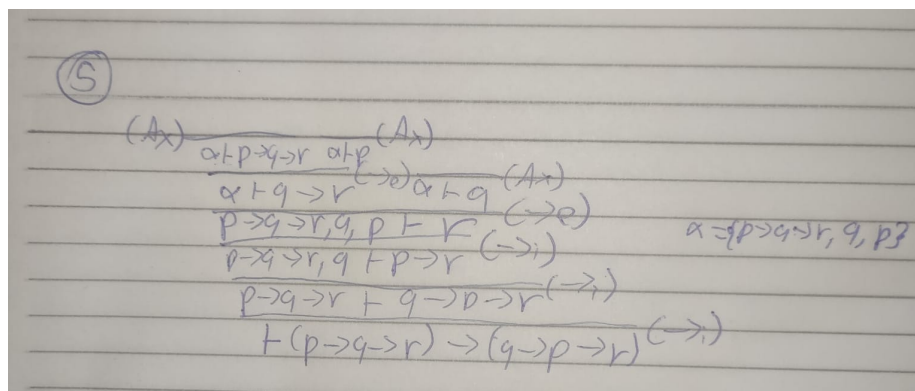 5
(Ax) (Ax)
α ⊢ p → q → r α ⊢ p
α ⊢ q → r (→e) α ⊢ q (Ax)
p → q → r, q, p ⊢ r (→e)
p → q → r, q ⊢ p → r (→i)
α = {p → q → r, q, p}
p → q → r ⊢ q → p → r (→i)
⊢ (p → q → r) → (q → p → r) (→i)